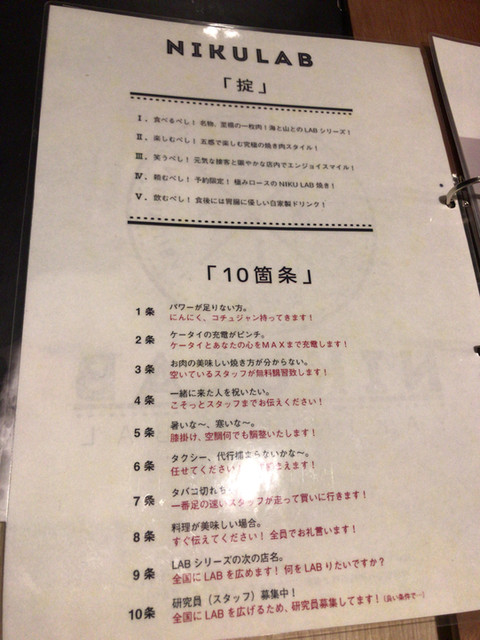 NIKULAB
「掟」
Ⅰ．食べるべし！名物、至極の一枚肉！海と山とのLABシリーズ！
Ⅱ．楽しむべし！五感で楽しむ究極の焼き肉スタイル！
Ⅲ．笑うべし！元気な接客と賑やかな店内でエンジョイスマイル！
Ⅳ．頼むべし！予約限定！極みロースのNIKU LAB焼き！
Ⅴ．飲むべし！食後には胃腸に優しい自家製ドリンク！
「10箇条」
1条 パワーが足りない方。
にんにく、コチュジャン持ってきます！
2条 ケータイの充電がピンチ。
ケータイとあなたの心をMAXまで充電します！
3条 お肉の美味しい焼き方が分からない。
空いているスタッフが無料講習致します！
4条 一緒に来た人を祝いたい。
こそっとスタッフまでお伝えください！
5条 暑いな〜、寒いな〜。
膝掛け、空調何でも調整いたします！
6条 タクシー、代行捕まらないかな〜。
任せてください！えます！
7条 タバコ切れた
一番足の速いスタッフが走って買いに行きます！
8条 料理が美味しい場合。
すぐ伝えてください！全員でお礼言います！
9条 LABシリーズの次の店名。
全国にLABを広めます！何をLABりたいですか？
10条 研究員（スタッフ）募集中！
全国にLABを広げるため、研究員募集してます！（良い条件で…）